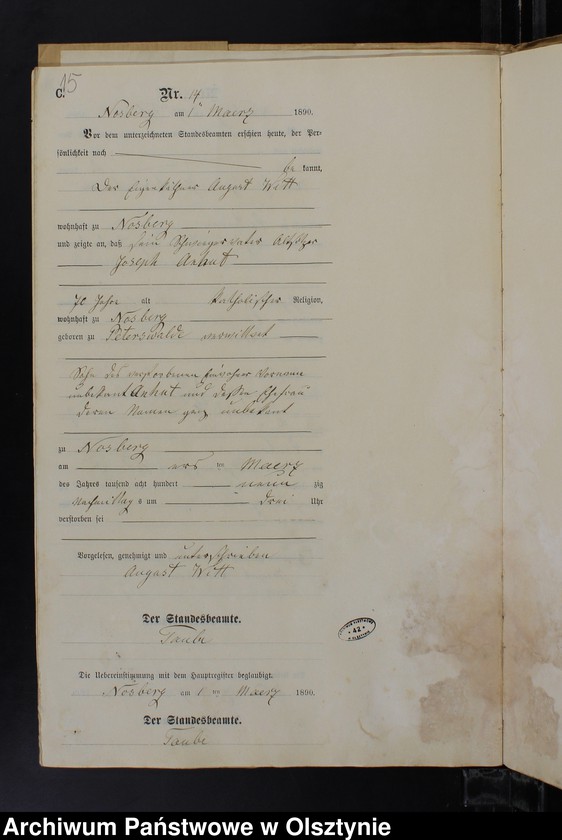 15
C.
Nr. 14
Nosberg am 1ten Maerz 1890.
Vor dem unterzeichneten Standesbeamten erschien heute, der Per-
sönlichkeit nach
be kannt,
Der Eigenkäthner August Witt
wohnhaft zu Nosberg
und zeigte an, daß sein Schwiegervater Altsitzer
Joseph Anhut
Jahre alt katholischer Religion,
wohnhaft zu Nosberg
geboren zu Peterswalde verwittwet
Sohn des verstorbenen Vornamen
unbekannt Anhut und dessen Ehefrau
deren Namen ganz unbekannt
zu Nosberg
am ten Maerz
des Jahres tausend acht hundert neun zig
Nachmittag s um drei Uhr
verstorben sei
Vorgelesen, genehmigt und unterschrieben
August Witt
Der Standesbeamte.
Taube
42
Die Uebereinstimmung mit dem Hauptregister beglaubigt.
Nosberg am 1 ten Maerz 1890.
Der Standesbeamte.
Taube
Archiwum Państwowe w Olsztynie